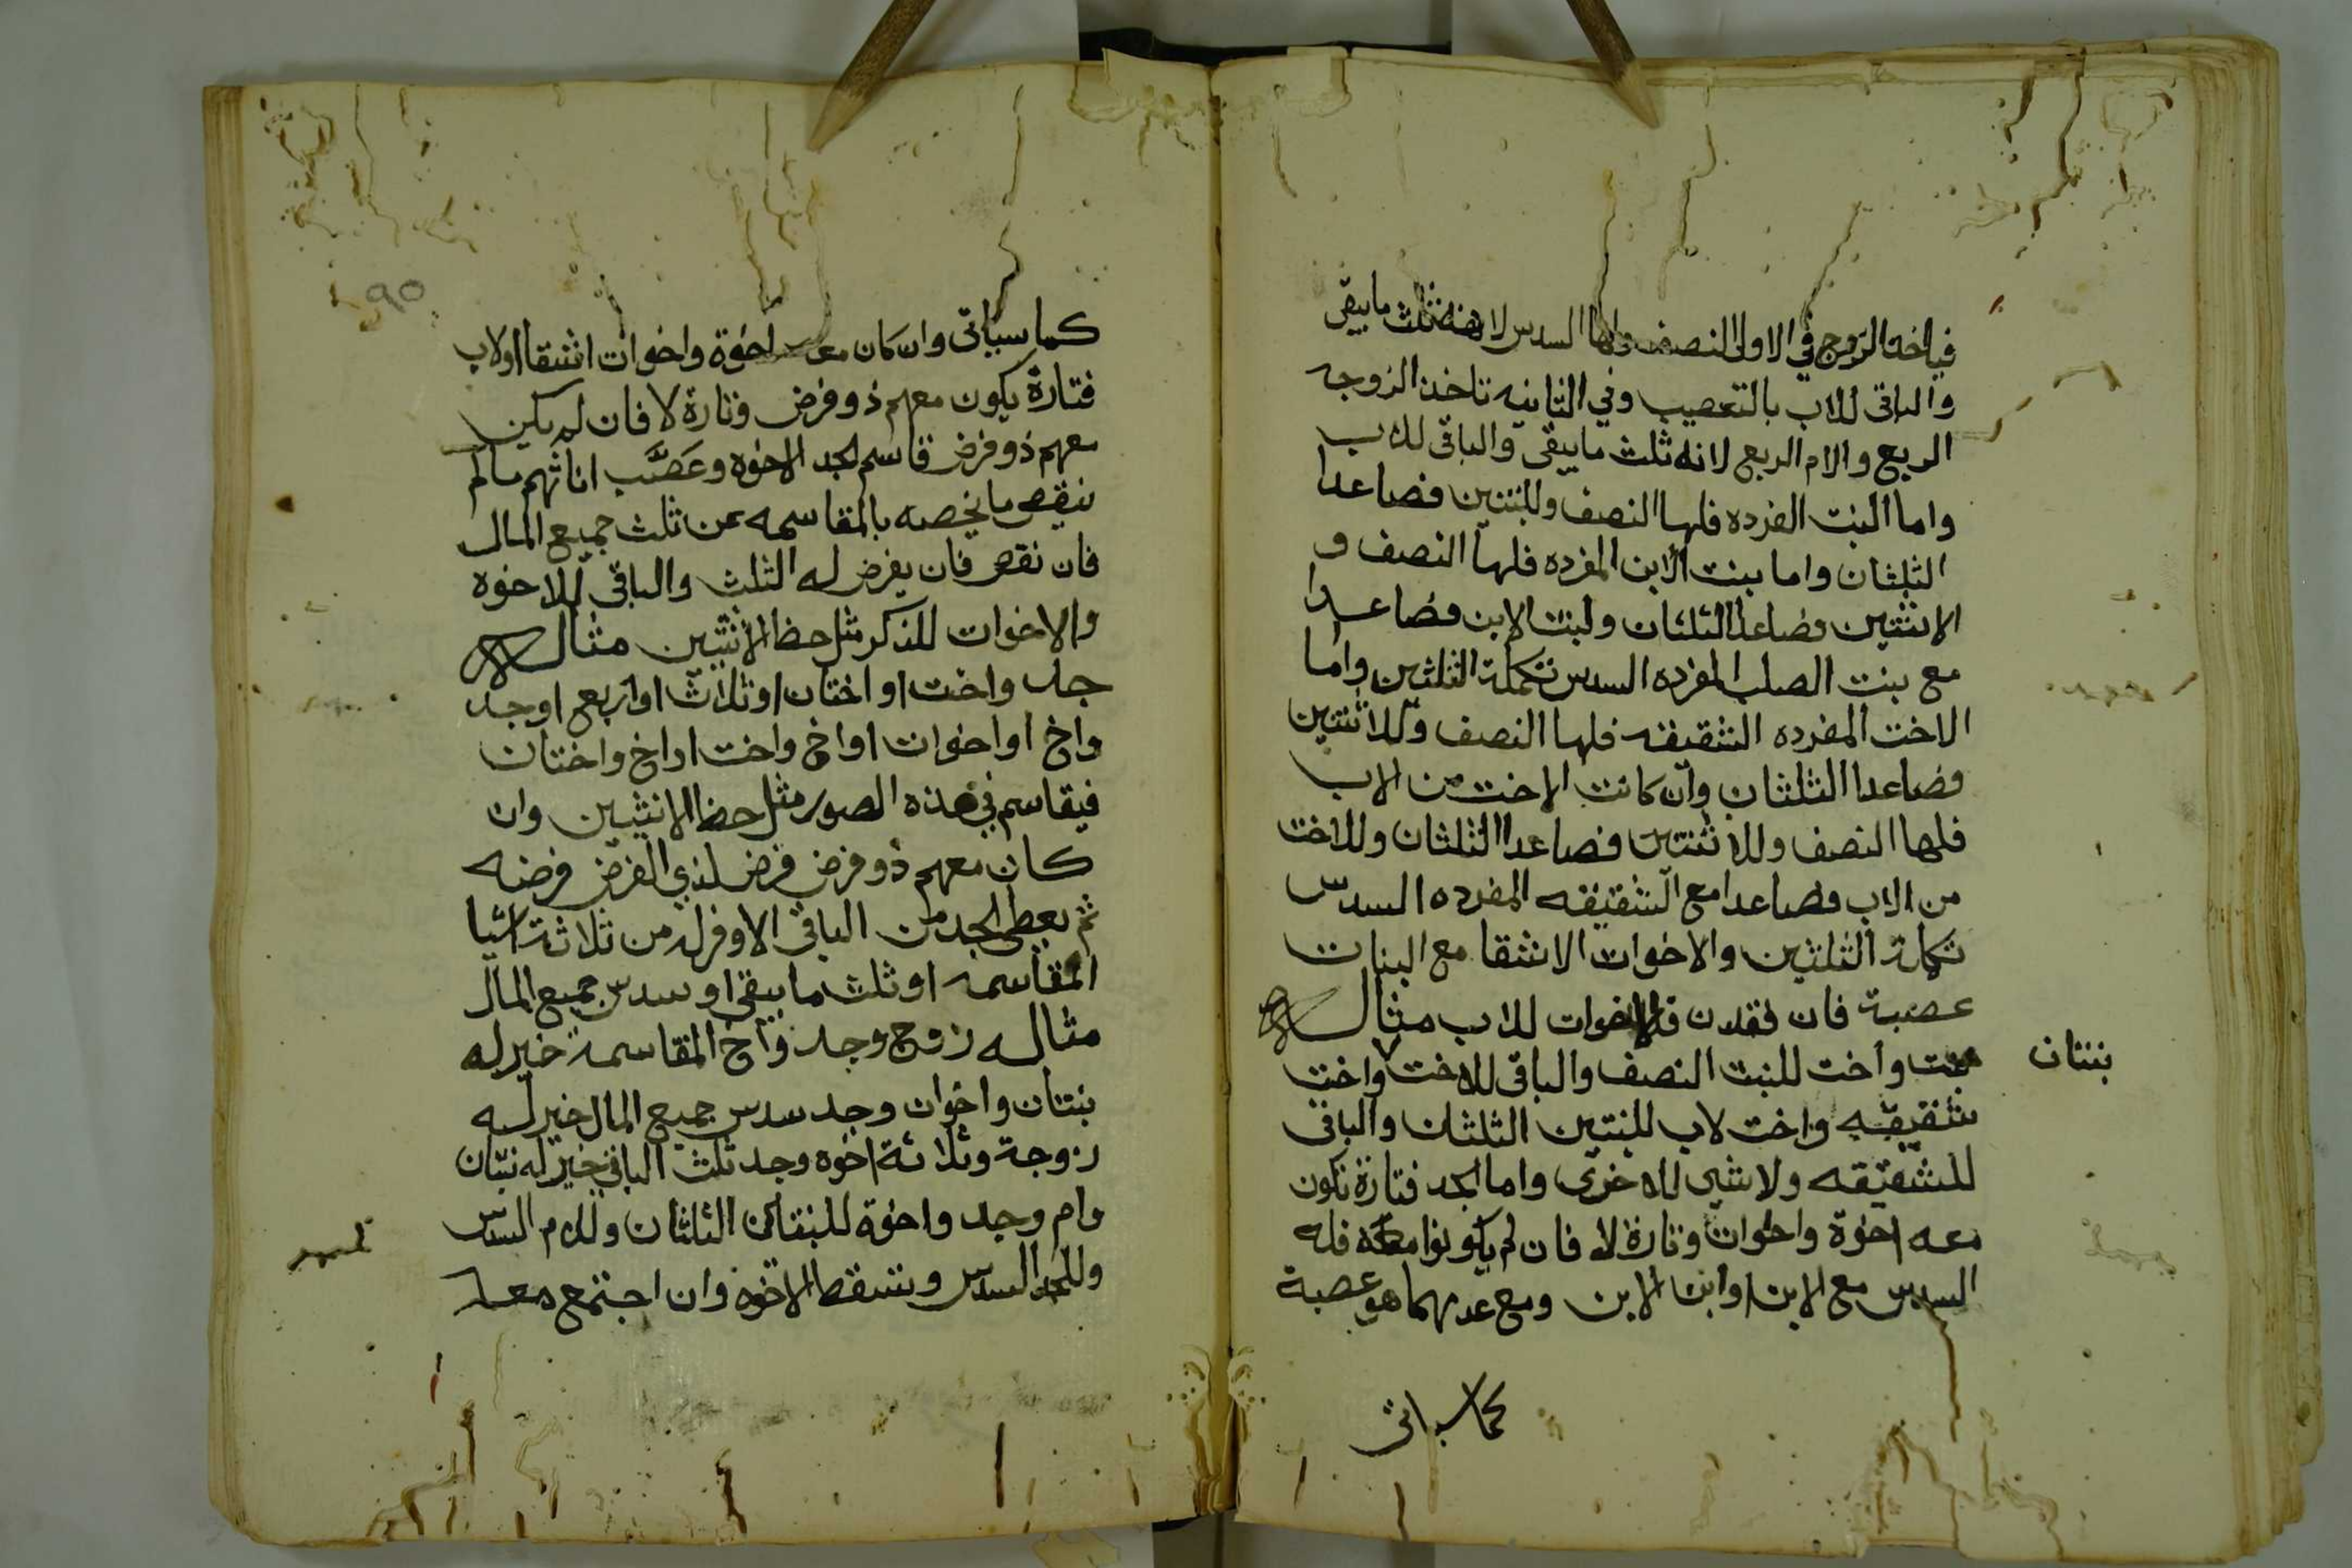 فياخذ الزوج في الاولى النصف ولها السدس لانه ثلث مايبقى
والباقى للاب بالتعصيب وفي الثانيه تاخذ الزوجه
الربع والام الربع لانه ثلث مايبقى والباقى للاب
واما البنت الفرده فلها النصف وللبنتين فصاعدا
الثلثان واما بنت الابن المفرده فلها النصف و
الاثنتين فصاعدا الثلثان ولبنت الابن فصاعدا
مع بنت الصلب المفرده السدس تكملة الثلثين واما
الاخت المفرده الشقيقه فلها النصف وللاثنتين
فصاعدا الثلثان وان كانت الاخت من الاب
فلها النصف وللاثنتين فصاعدا الثلثان وللاخت
من الاب فصاعدا مع الشقيقه المفرده السدس
تكملة الثلثين والاخوات الاشقا مع البنات
عصبة فان فقدن فالاخوات للاب مثاله
بنت واخت للبنت النصف والباقى للاخت واخت
بنتان
شقيقه واخت لاب للبنتين الثلثان والباقى
للشقيقه ولاشي للاخرى واما الجد فتارة تكون
معه اخوة واخوات وتارة لا فان لم يكونوا معه فله
السدس مع الابن اوابن الابن ومع عدمهما هو عصبة
كما سياتى
٩٥
كما سياتى وان كان معه اخوة واخوات اشقا اولاب
فتارة يكون معهم ذو فرض وتارة لا فان لم يكن
معهم ذو فرض قاسم الجد الاخوه وعَصَّب اناثهم مالم
ينقص مايخصه بالمقاسمه عن ثلث جميع المال
فان نقص فان يفرض له الثلث والباقى للاخوه
والاخوات للذكر مثل حظ الانثيين مثاله
جد واخت او اختان او ثلاث او اربع او جد
واخ او اخوات او اخ واخت او اخ واختان
فيقاسم في هذه الصور مثل حظ الانثيين وان
كان معهم ذو فرض فرض لذي الفرض فرضه
ثم يعطى الجد من الباقى الاوفر له من ثلاثة اشيا
المقاسمه او ثلث مايبقى او سدس جميع المال
مثاله زوج وجد واخ المقاسمة خير له
بنتان واخوان وجد سدس جميع المال خير له
زوجة وثلاثة اخوه وجد ثلث الباقي خير له بنتان
وام وجد واخوة للبنتان الثلثان وللام السدس
وللجد السدس وتسقط الاخوه وان اجتمع معه